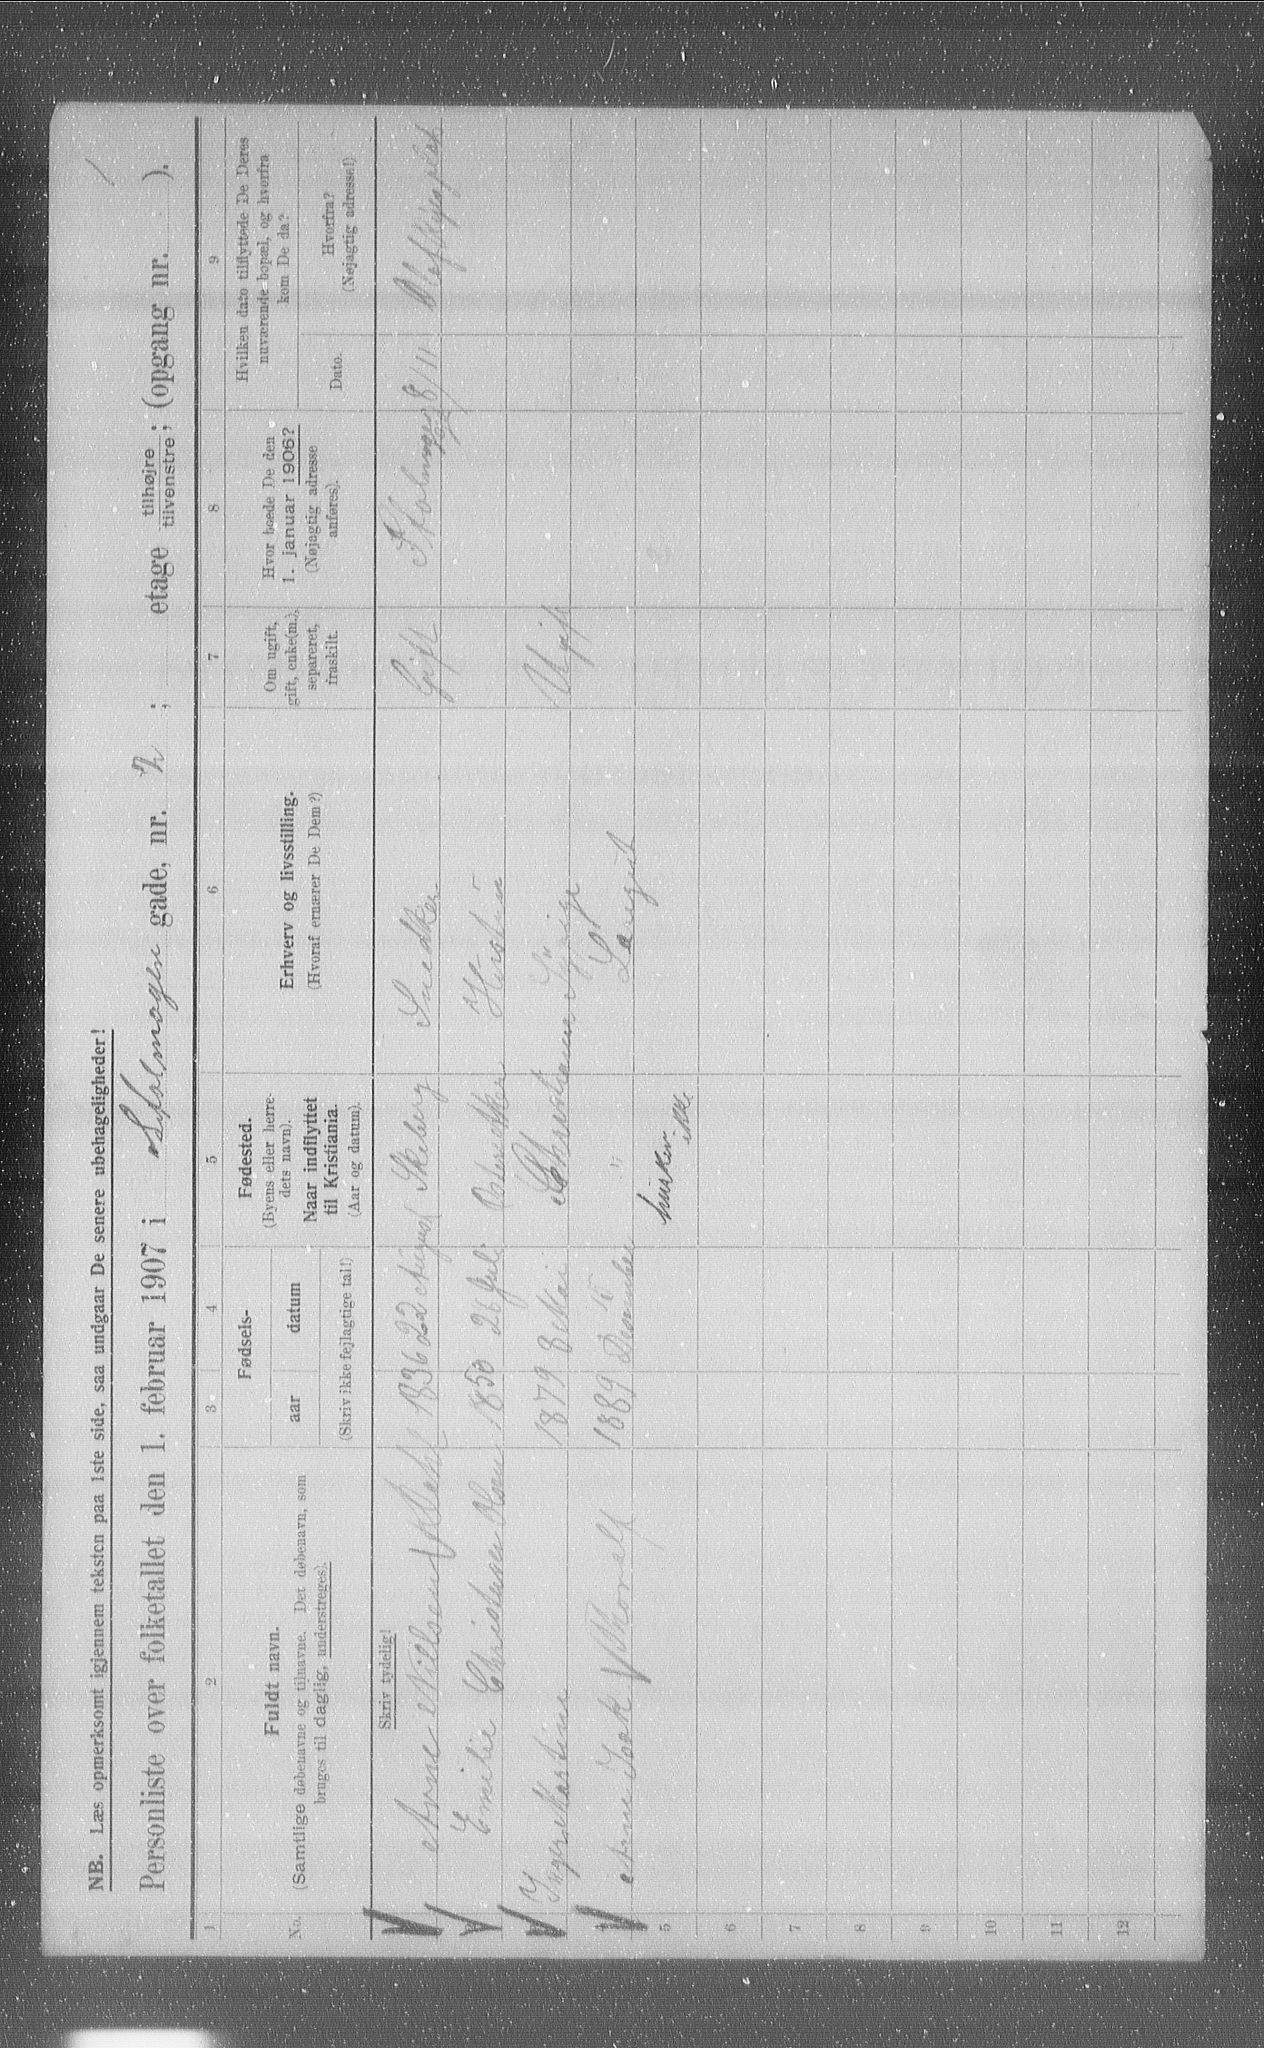 NB. Læs opmerksomt igjennem teksten paa 1ste side, saa undgaar De senere ubehageligheder!
Personliste over folketallet den 1. februar 1907 i Stolmagen gade, nr. 2 ; etage tilhøjre tilvenstre; (opgang nr. ).
1 2 3 4 5 6 7 8 9
No.
Fuldt navn.
(Samtlige døbenavne og tilnavne. Det døbenavn, som
bruges til daglig, understreges).
Fødsels-
aar datum
(Skriv ikke fejlagtige tal!)
Fødested.
(Byens eller herre-
dets navn).
Naar indflyttet
til Kristiania.
(Aar og datum).
Erhverv og livsstilling.
(Hvoraf ernærer De Dem?)
Om ugift,
gift, enke(m.),
separeret,
fraskilt.
Hvor boede De den
1. januar 1906?
(Nøjagtig adresse
anføres).
Hvilken dato tilflyttede De Deres
nuværende bopæl, og hvorfra
kom De da?
Dato.
Hvorfra?
(Nøjagtig adresse!)
Skriv tydelig!
Arne Nillsen Dehl 1836 22 August Skeberg Snedker Gift 8/11
Emilie Christensen Olsen 1850 26 Juli Hustru
Inger Martine 1879 8 Mai Christiania Ugift
Arne Isak Thoralf 1889 December "
5 husker ikke
6
7
8
9
10
11
12